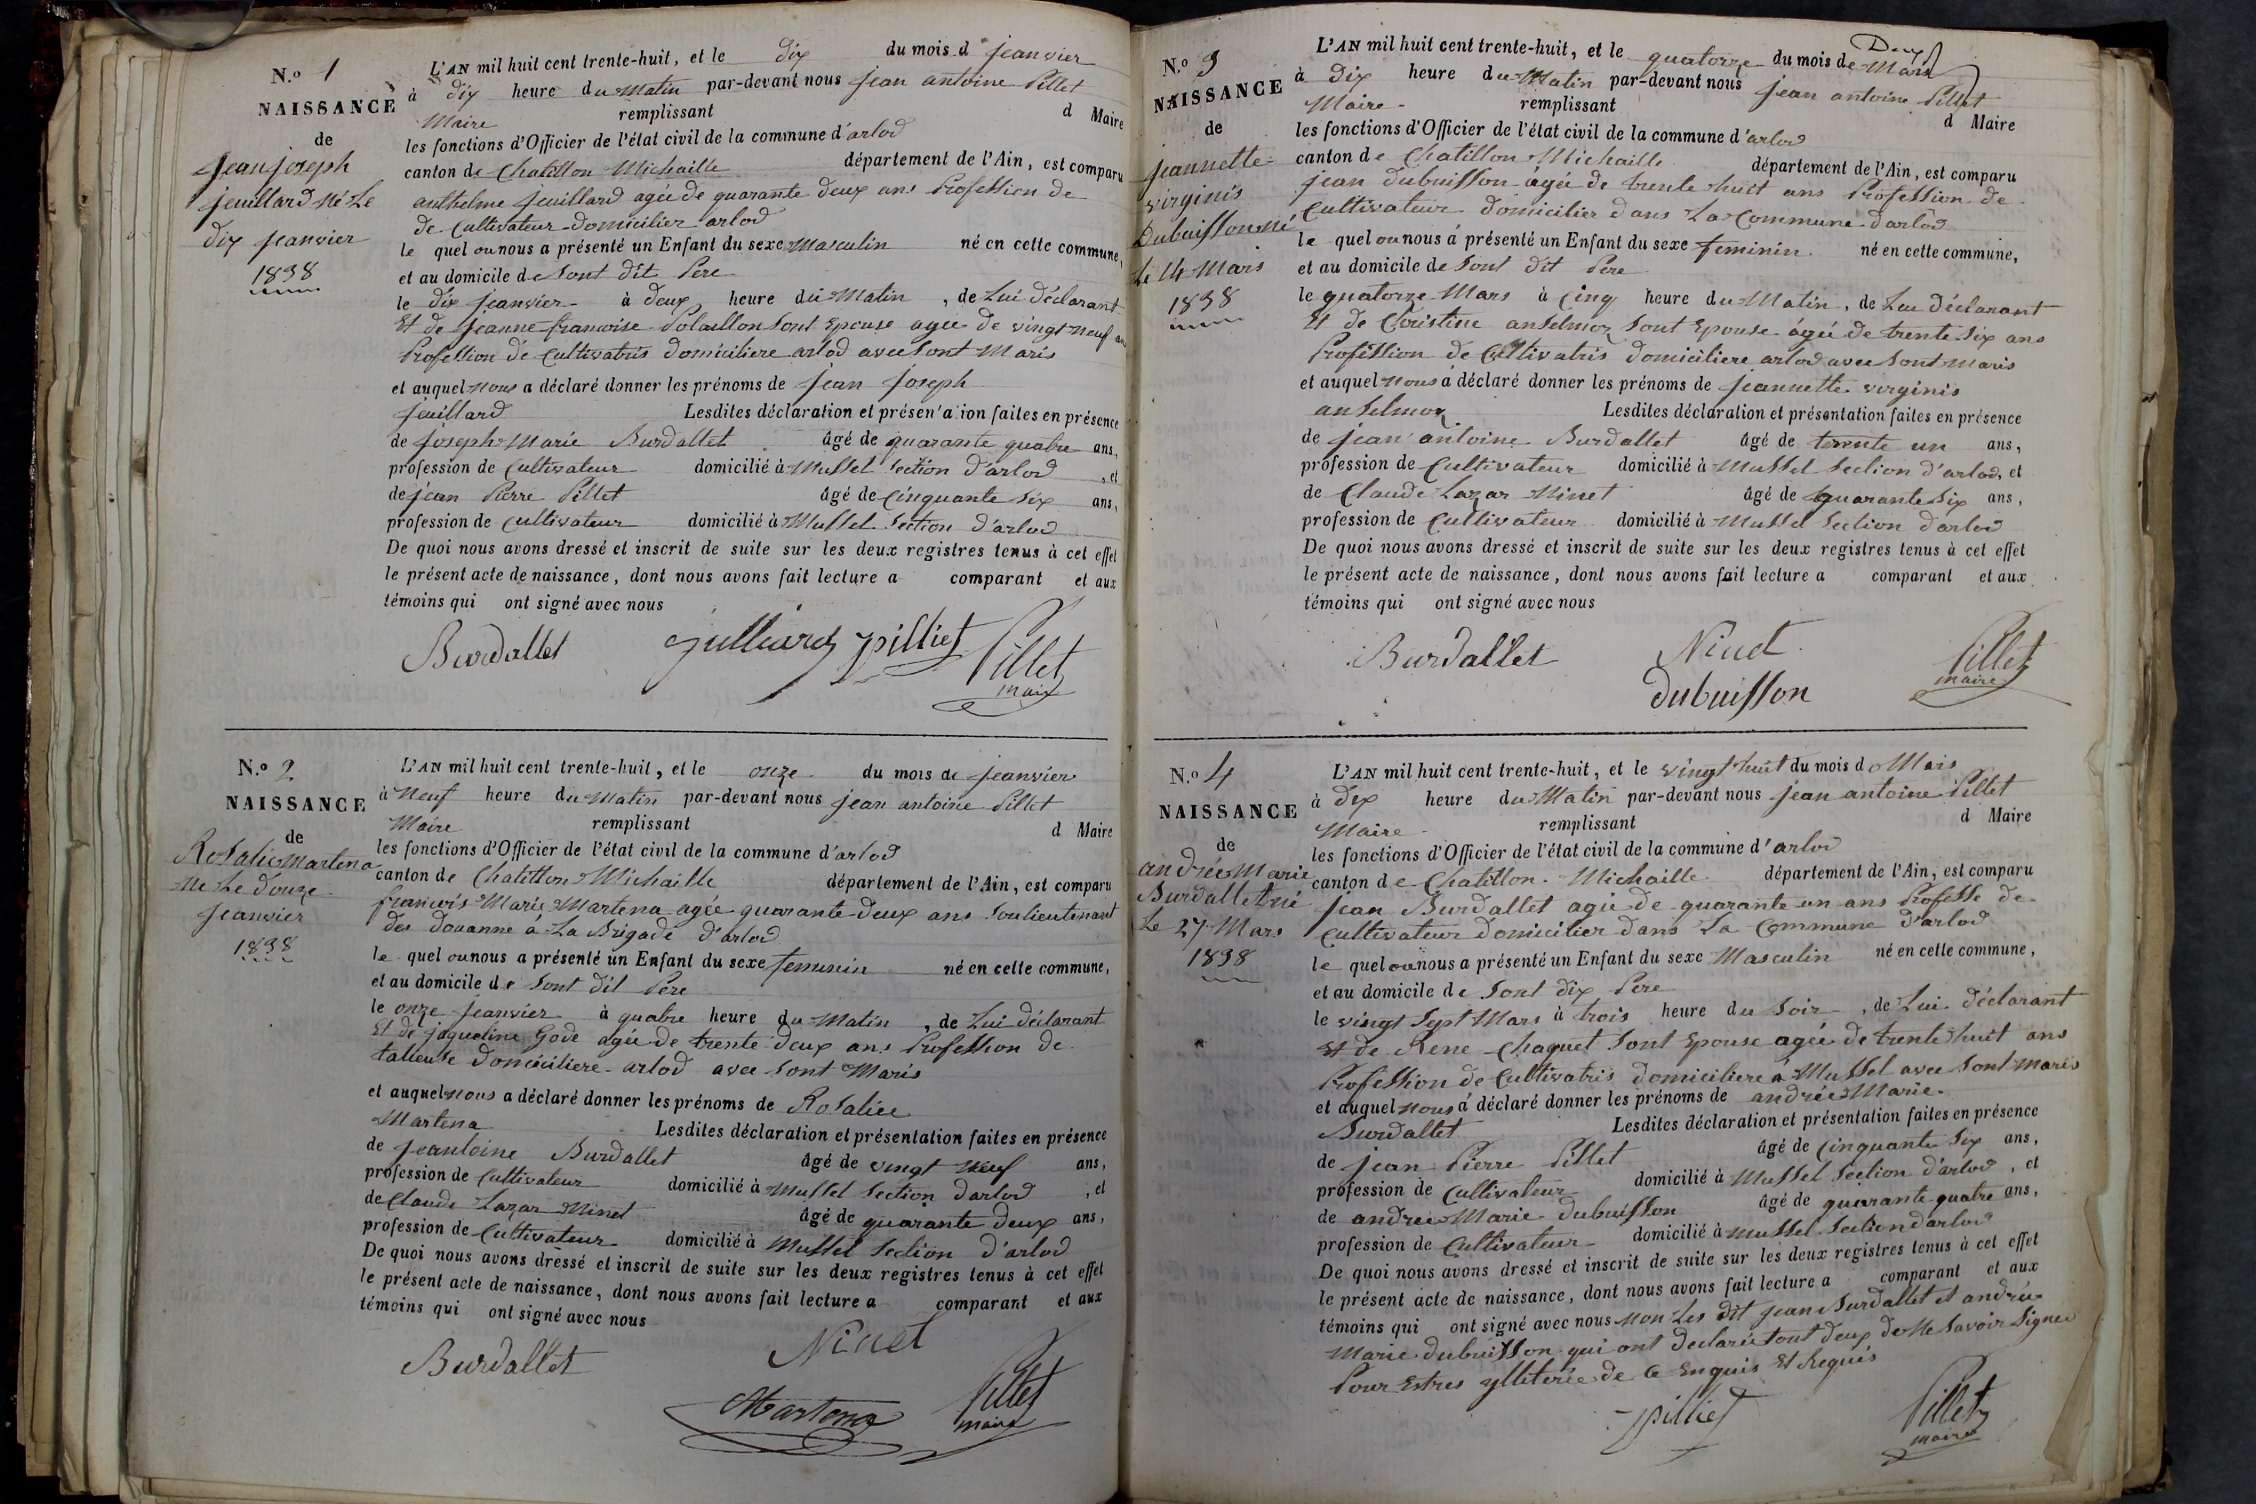 N.º 1
NAISSANCE
de
jean joseph
juillard né Le
dix jeanvier
1838
L'AN mil huit cent trente-huit, et le dix du mois d jeanvier
à dix heure du Matin par-devant nous jean antoine Pillet
Maire remplissant d Maire
les fonctions d'Officier de l'état civil de la commune d'arlod
canton de Chatillon Michaille département de l'Ain, est comparu
anthelme juillard agée de quarante deux ans Profession de
de Cultivateur domicilier arlod
le quel ou nous a présenté un Enfant du sexe Masculin né en cette commune,
et au domicile de Sont dit Pere
le dix jeanvier à deux heure du Matin, de Lui déclarant
Et de jeanne francoise Polaillon Sont Epouse agée de vingt neuf ans
Profession de Cultivatris domiciliere arlod avec Sont Maris
et auquel nous a déclaré donner les prénoms de jean joseph
juillard Lesdites déclaration et présentation faites en présence
de joseph Marie Burdallet âgé de quarante quatre ans,
profession de Cultivateur domicilié à Mussel Section d'arlod, et
de jean Pierre Pillet âgé de Cinquante Six ans,
profession de Cultivateur domicilié à Mussel Section d'arlod
De quoi nous avons dressé et inscrit de suite sur les deux registres tenus à cet effet
le présent acte de naissance, dont nous avons fait lecture a comparant et aux
témoins qui ont signé avec nous
Burdallet julliard jpilliet Pillet
maire
N.º 2
NAISSANCE
de
Rosalie Martena
né Le douze
jeanvier
1838
L'AN mil huit cent trente-huit, et le onze du mois de jeanvier
à Neuf heure du Matin par-devant nous jean antoine Pillet
Maire remplissant d Maire
les fonctions d'Officier de l'état civil de la commune d'arlod
canton de Chatillon Michaille département de l'Ain, est comparu
francois Marie Martena agée quarante deux ans Soulieutenant
des douanne á La Brigade d'arlod
le quel ou nous a présenté un Enfant du sexe feminin né en cette commune,
et au domicile de Sont dit Pere
le onze jeanvier à quatre heure du Matin, de Lui déclarant
Et de jaqueline Gode agée de trente deux ans Profession de
tailleuse domiciliere arlod avec Sont Maris
et auquel nous a déclaré donner les prénoms de Rosaliee
Martena Lesdites déclaration et présentation faites en présence
de jeantoine Burdallet âgé de vingt neuf ans,
profession de Cultivateur domicilié à Mussel Section d'arlod, et
de Claude Lazar Ninet âgé de quarante deux ans,
profession de Cultivateur domicilié à Mussel Section d'arlod
De quoi nous avons dressé et inscrit de suite sur les deux registres tenus à cet effet
le présent acte de naissance, dont nous avons fait lecture a comparant et aux
témoins qui ont signé avec nous
Burdallet Ninet
Martena Pillet
maire
N.º 3
NAISSANCE
de
jeannette
virginis
Dubuisson né
Le 14 Mars
1838
L'AN mil huit cent trente-huit, et le quatorze du mois de Mars
à Dix heure du Matin par-devant nous jean antoine Pillet
Maire remplissant d Maire
les fonctions d'Officier de l'état civil de la commune d'arlod
canton de Chatillon Michaille département de l'Ain, est comparu
jean dubuisson agée de trente huit ans Profession de
Cultivateur domicilier dans La Commune d'arlod
le quel ou nous a présenté un Enfant du sexe feminin né en cette commune,
et au domicile de Sont dit Pere
le quatorze Mars à Cinq heure du Matin, de Lui déclarant
Et de Christine anselmoz Sont Epouse agée de trente Six ans
Profession de Cultivatris domiciliere arlod avec Sont maris
et auquel nous a déclaré donner les prénoms de jeannette virginis
anselmoz Lesdites déclaration et présentation faites en présence
de jean antoine Burdallet âgé de trente un ans,
profession de Cultivateur domicilié à Mussel Section d'arlod, et
de Claude Lazar Ninet âgé de quarante Six ans,
profession de Cultivateur domicilié à Mussel Section d'arlod
De quoi nous avons dressé et inscrit de suite sur les deux registres tenus à cet effet
le présent acte de naissance, dont nous avons fait lecture a comparant et aux
témoins qui ont signé avec nous
Burdallet Ninet Pillet
maire
dubuisson
N.º 4
NAISSANCE
de
andrée Marie
Burdallet né
Le 27 Mars
1838
L'AN mil huit cent trente-huit, et le vingt huit du mois d Mars
à Dix heure du Matin par-devant nous jean antoine Pillet
Maire remplissant d Maire
les fonctions d'Officier de l'état civil de la commune d'arlod
canton de Chatillon Michaille département de l'Ain, est comparu
jean Burdallet agée de quarante un ans Professe de
Cultivateur domicilier dans La Commune d'arlod
le quel ou nous a présenté un Enfant du sexe Masculin né en cette commune,
et au domicile de Sont dix Pere
le vingt Sept Mars à trois heure du Soir, de Lui déclarant
Et de Rene Chaquet Sont Epouse agée de trente huit ans
Profession de Cultivatris domiciliere a Mussel avec Sont maris
et auquel nous a déclaré donner les prénoms de andrée Marie
Burdallet Lesdites déclaration et présentation faites en présence
de jean Pierre Pillet âgé de Cinquante Six ans,
profession de Cultivateur domicilié à Mussel Section d'arlod, et
de andree Marie dubuisson âgé de quarante quatre ans,
profession de Cultivateur domicilié à Mussel Section d'arlod
De quoi nous avons dressé et inscrit de suite sur les deux registres tenus à cet effet
le présent acte de naissance, dont nous avons fait lecture a comparant et aux
témoins qui ont signé avec nous Non Les dit jean Burdallet et andrée
Marie dubuisson qui ont declarée tout deux de Ne Savoir Signee
Pour Estres ylliterée de Ce Enquis Et Requis
jpilliet Pillet
maire